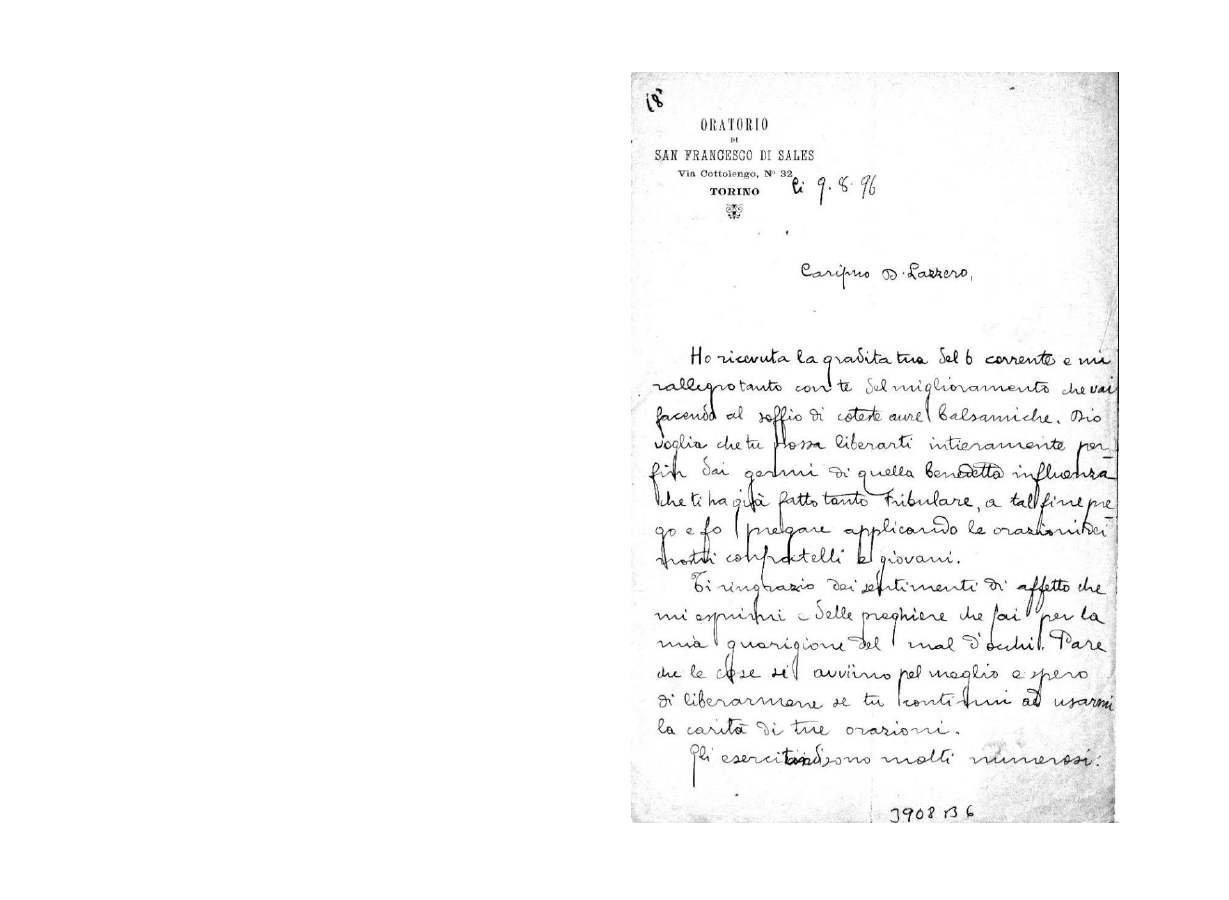 18
ORATORIO
DI
SAN FRANCESCO DI SALES
Via Cottolengo, N° 32
TORINO
li 9. 8. 96
Carissmo D. Lazzero,
Ho ricevuta la gradita tua del 6 corrente e mi
rallegro tanto con te del miglioramento che vai
facendo al soffio di coteste aure balsamiche. Dio
voglia che tu possa liberarti intieramente per-
fin dai germi di quella benedetta influenza
che ti ha già fatto tanto tribulare, a tal fine pre-
go e fo pregare applicando le orazioni dei
nostri confratelli e giovani.
Ti ringrazio dei sentimenti di affetto che
mi esprimi e delle preghiere che fai per la
mia guarigione del mal d'occhi. Pare
che le cose si avviino pel meglio e spero
di liberarmene se tu continui ad usarmi
la carità di tue orazioni.
Gli esercitandi sono molti numerosi:
3908 B 6